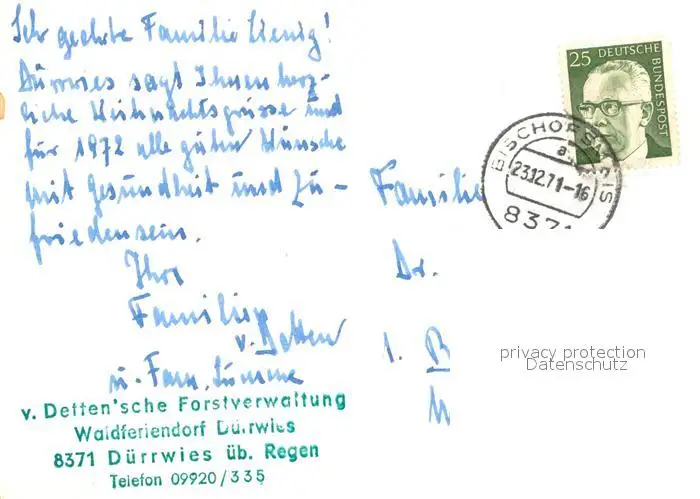 Sehr geehrte Familie Lienig!
Dürrwies sagt Ihnen herz-
liche Weihnachtsgrüsse und
für 1972 alle guten Wünsche
mit Gesundheit und Zu-
friedensein.
Ihre
Familie
v. Detten
u. Fam.
v. Detten'sche Forstverwaltung
Waldferiendorf Dürrwies
8371 Dürrwies üb. Regen
Telefon 09920/335
25 DEUTSCHE
BUNDESPOST
BISCHOFSMAIS
23.12.71-16
8371
Familie
Dr.
1. B
privacy protection
Datenschutz